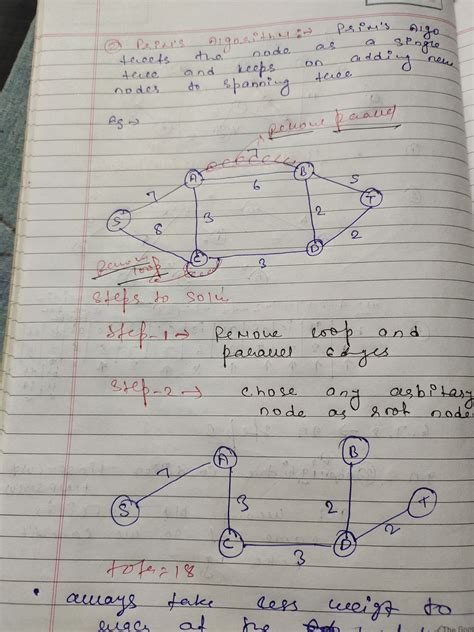 ② Prim's Algorithm :→ Prim's Algo
treets the node as a single
tree and keeps on adding new
nodes to spanning tree
Eg →
Remove parallel
7
A
B
6
5
7
T
S
8
3
2
2
C
D
3
Remove
loop
Steps to solve
Step-1 → Remove loop and
parallel edges
Step-2 → Chose any arbitary
node as root node
A
B
7
S
3
2
T
2
C
D
3
total=18
• always take less weigt to
edges of the